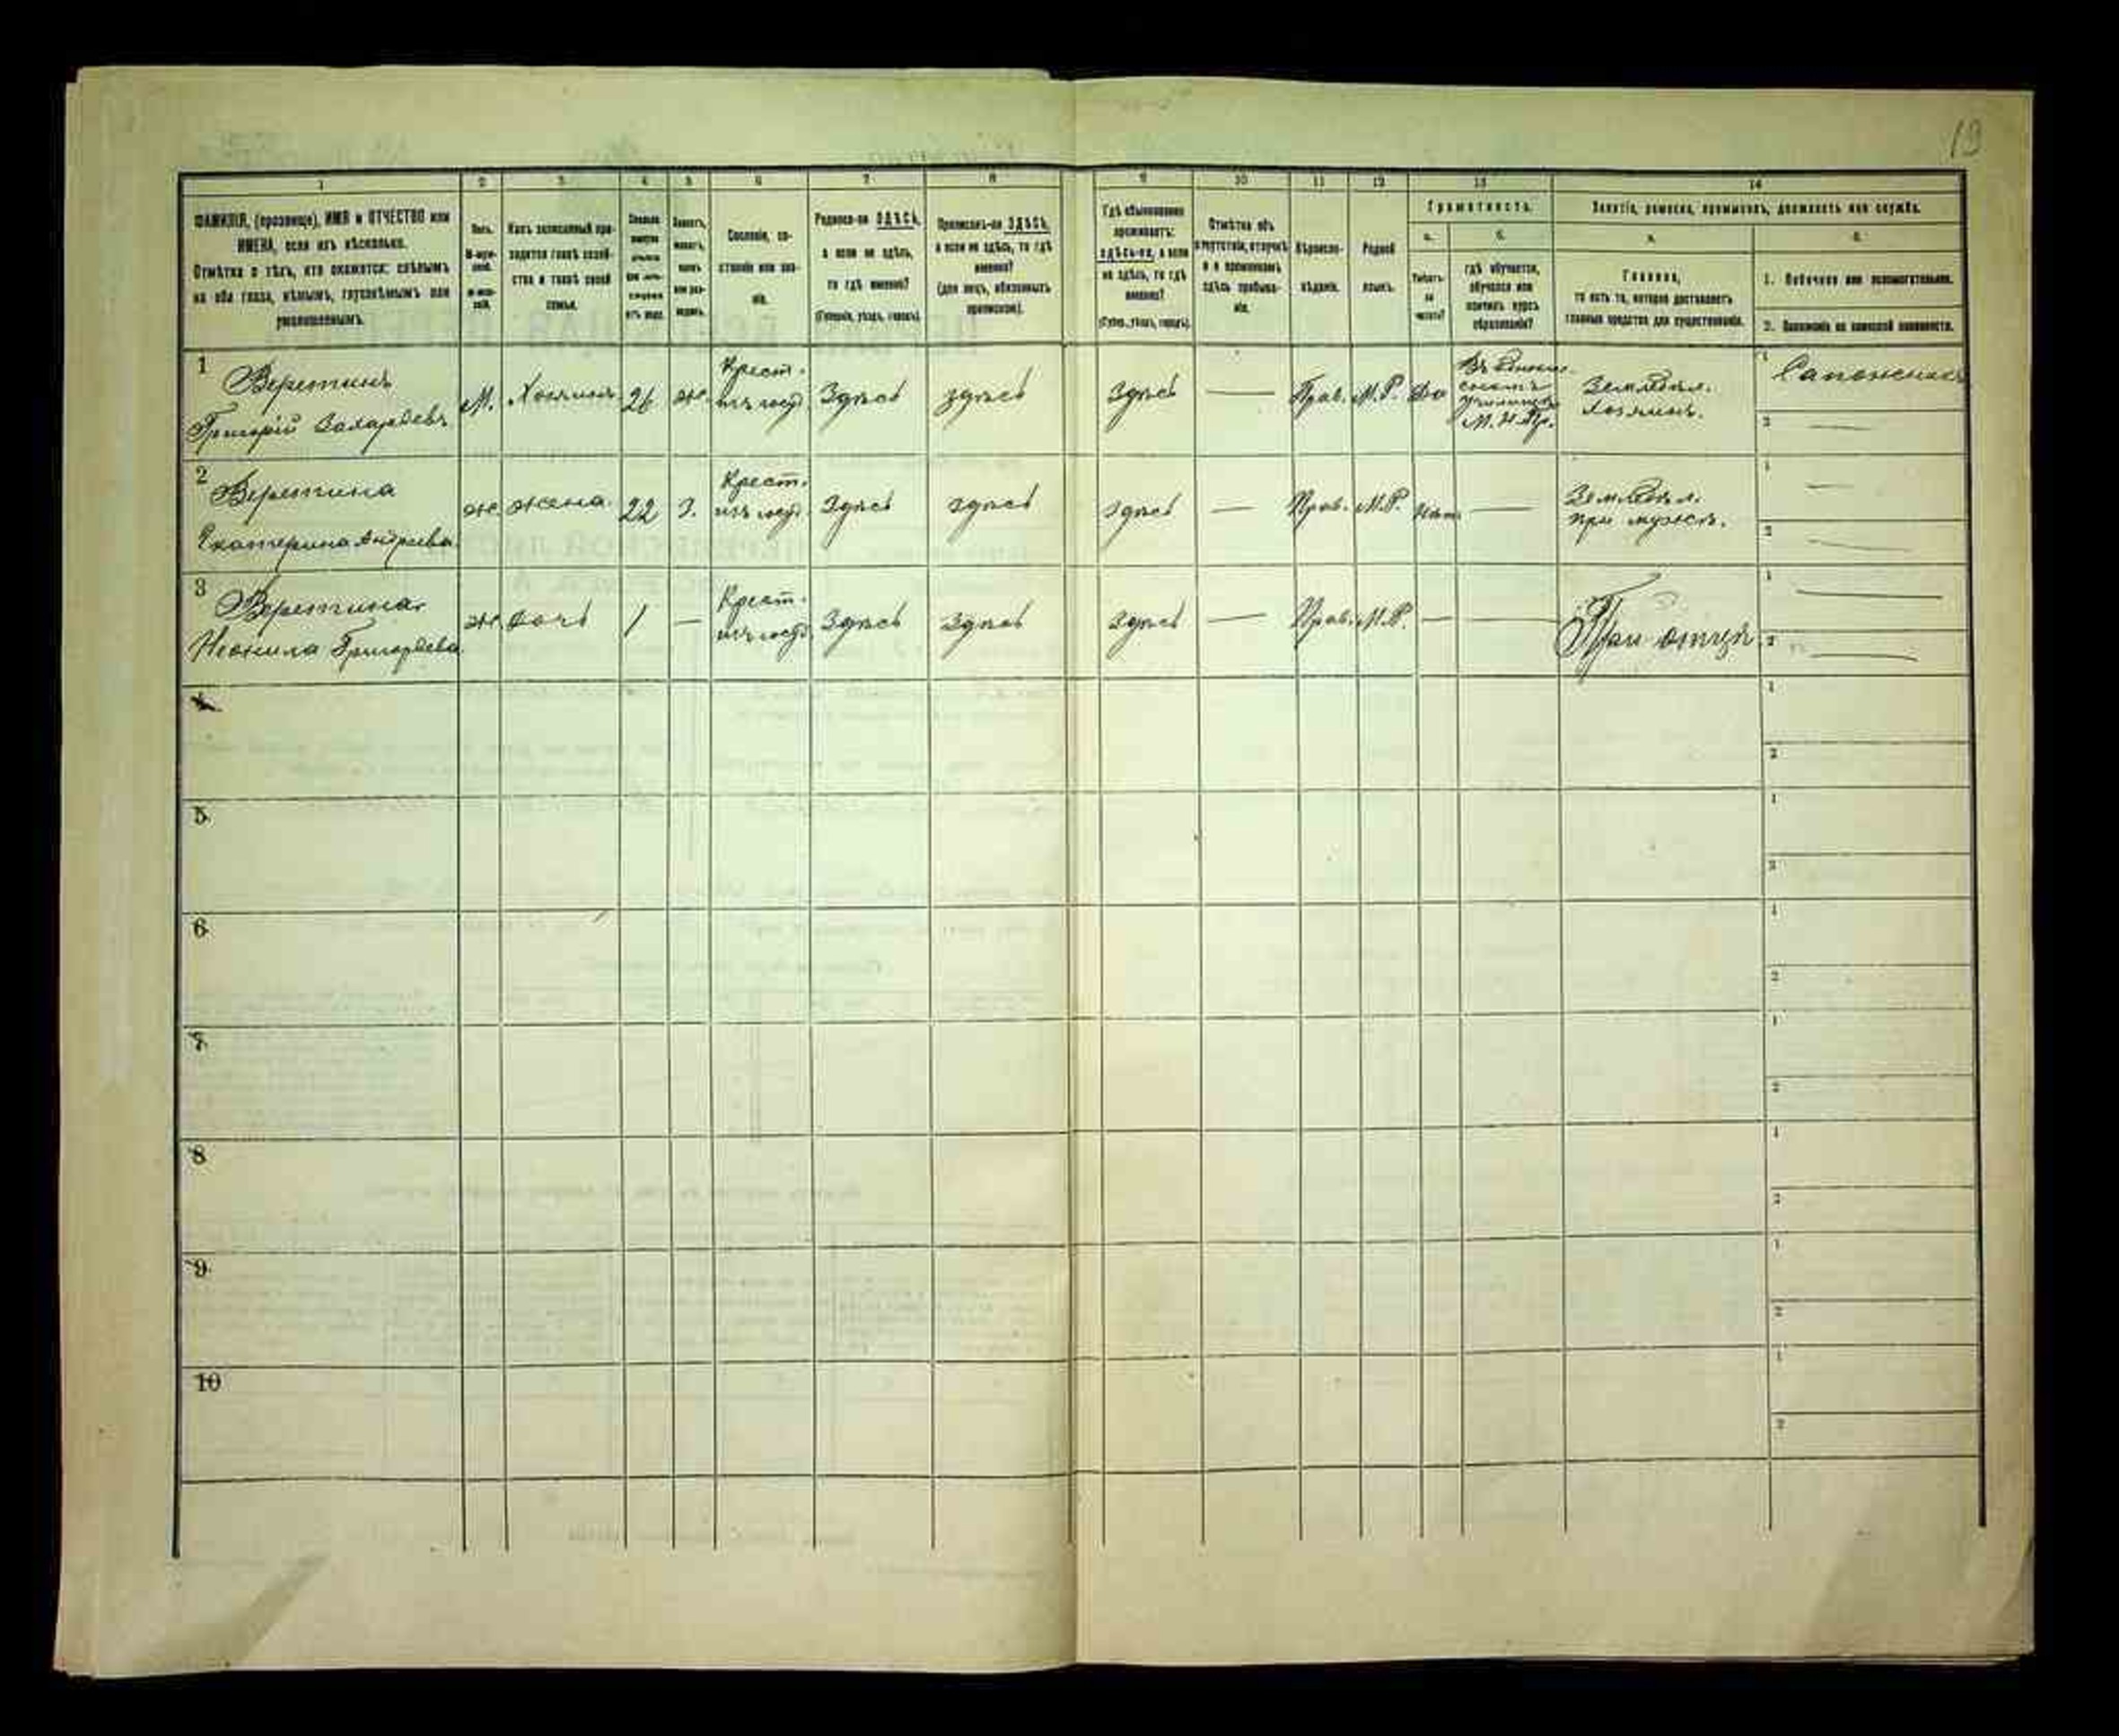 19
1 2 3 4 5 6 7 8 9 10 11 12 13 14
ФАМИЛІЯ, (прозвище), ИМЯ и ОТЧЕСТВО или
ИМЕНА, если ихъ нѣсколько.
Отмѣтка о тѣхъ, кто окажется: слѣпымъ
на оба глаза, нѣмымъ, глухонѣмымъ или
умалишеннымъ.
Полъ.
Какъ записанный при-
ходится главѣ хозяй-
ства и главѣ своей
семьи.
Сословіе, со-
стояніе или зва-
ніе.
Родился-ли ЗДѢСЬ,
а если не здѣсь,
то гдѣ именно?
(Губернія, уѣздъ, городъ).
Приписанъ-ли ЗДѢСЬ,
а если не здѣсь, то гдѣ
именно?
(для лицъ, обязанныхъ
припискою).
Гдѣ обыкновенно
проживаетъ:
здѣсь-ли, а если
не здѣсь, то гдѣ
именно?
(Губер., уѣздъ, городъ).
Отмѣтка объ
отсутствіи, отлучкѣ
и о временномъ
здѣсь пребыва-
ніи.
Вѣроиспо-
вѣданіе.
Родной
языкъ.
Грамотность.
а. б.
Умѣетъ-
ли
читать?
гдѣ обучается,
обучался или
кончилъ курсъ
образованія?
Занятіе, ремесло, промыселъ, должность или служба.
а. б.
Главное,
то есть то, которое доставляетъ
главныя средства для существованія.
1. Побочное или вспомогательное.
2. Положеніе по воинской повинности.
1
Веретинъ
Григорій Захарьевъ
М. Хозяинъ 26 ж. Крест. изъ госуд. Здѣсь здѣсь Здѣсь — Прав. М.Р. Да
училищѣ
М. Н. Пр.
Земледѣл.
хозяинъ.
1 Сапожникъ
2 —
2
Веретина
Екатерина Андреева
ж. жена 22 З. Крест. изъ госуд. Здѣсь здѣсь здѣсь — Прав. М.Р. Нѣт —
Земледѣл.
при мужѣ.
1 —
2 —
3
Веретина
Неонила Григорьева
ж. дочь 1 — Крест. изъ госуд. Здѣсь здѣсь Здѣсь — Прав. М.Р. — —
При отцѣ
1 —
2 —
4 1
2
5 1
2
6 1
2
7 1
2
8 1
2
9 1
2
10 1
2